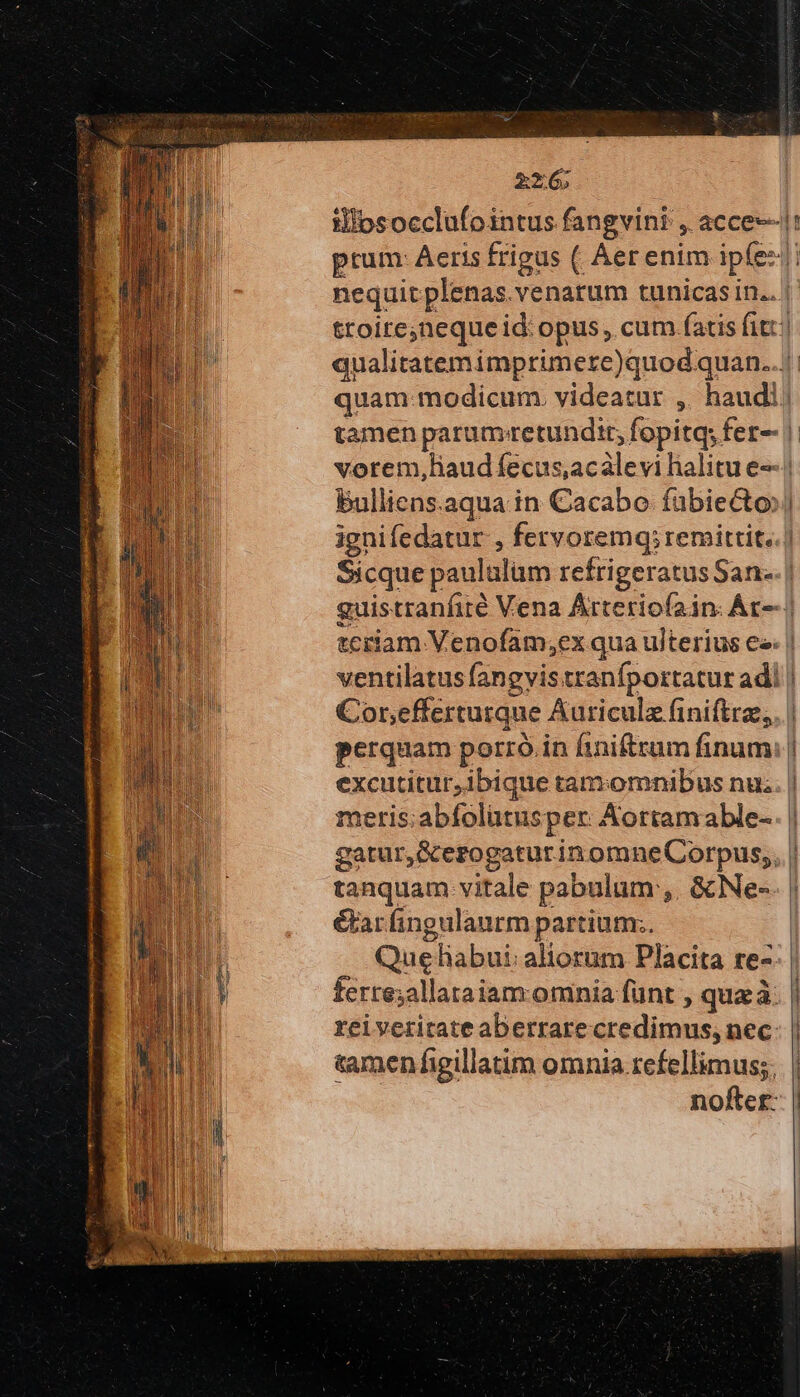 226
illosocclusointus sangvini, acce-
ptum Aeris frigus ( Aer enim ipse
nequit plenas venarum tunicas in-
troire; neque id opus, cum satis sit
qualitatem imprimere) quod quan-
quam modicum videatur, haud
tamen parum retundit, sopitq; fer-
vorem, haud secus, ac à levi halitu e-
bulliens aqua in Cacabo subiecto
igni sedatur, fervoremq; remittit.
Sicque paululùm refrigeratus San-
guis transitè Vena Arteriosa in Ar-
teriam Venosam, ex qua ulterius e-
ventilatus sangvis transportatur ad
Cor, efferturque Auriculæ sinistræ,
perquam porrò in sinistrum sinum
excutitur, ibique tam omnibus nu-
meris absolutus per Aortam able-
gatur, & erogatur in omne Corpus,
tanquam vitale pabulum, & Ne-
ctar singulaurm partium.
Quę habui aliorum Placita re-
ferre; allata iam omnia sunt, quæ à
rei veritate aberrare credimus, nec
tamen sigillatim omnia refellimus;
noster